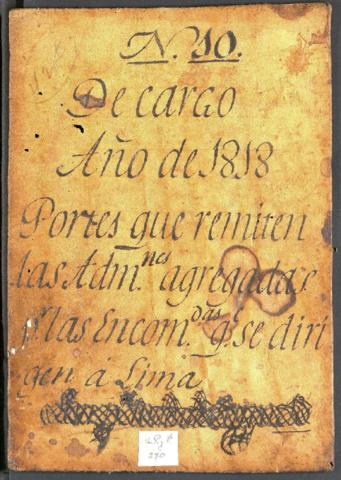 N. 10.
De cargo
Año de 1818
Portes que remiten
las Adm.nes agregadas
Mas Encom.das q.e se diri
gen á Lima
270